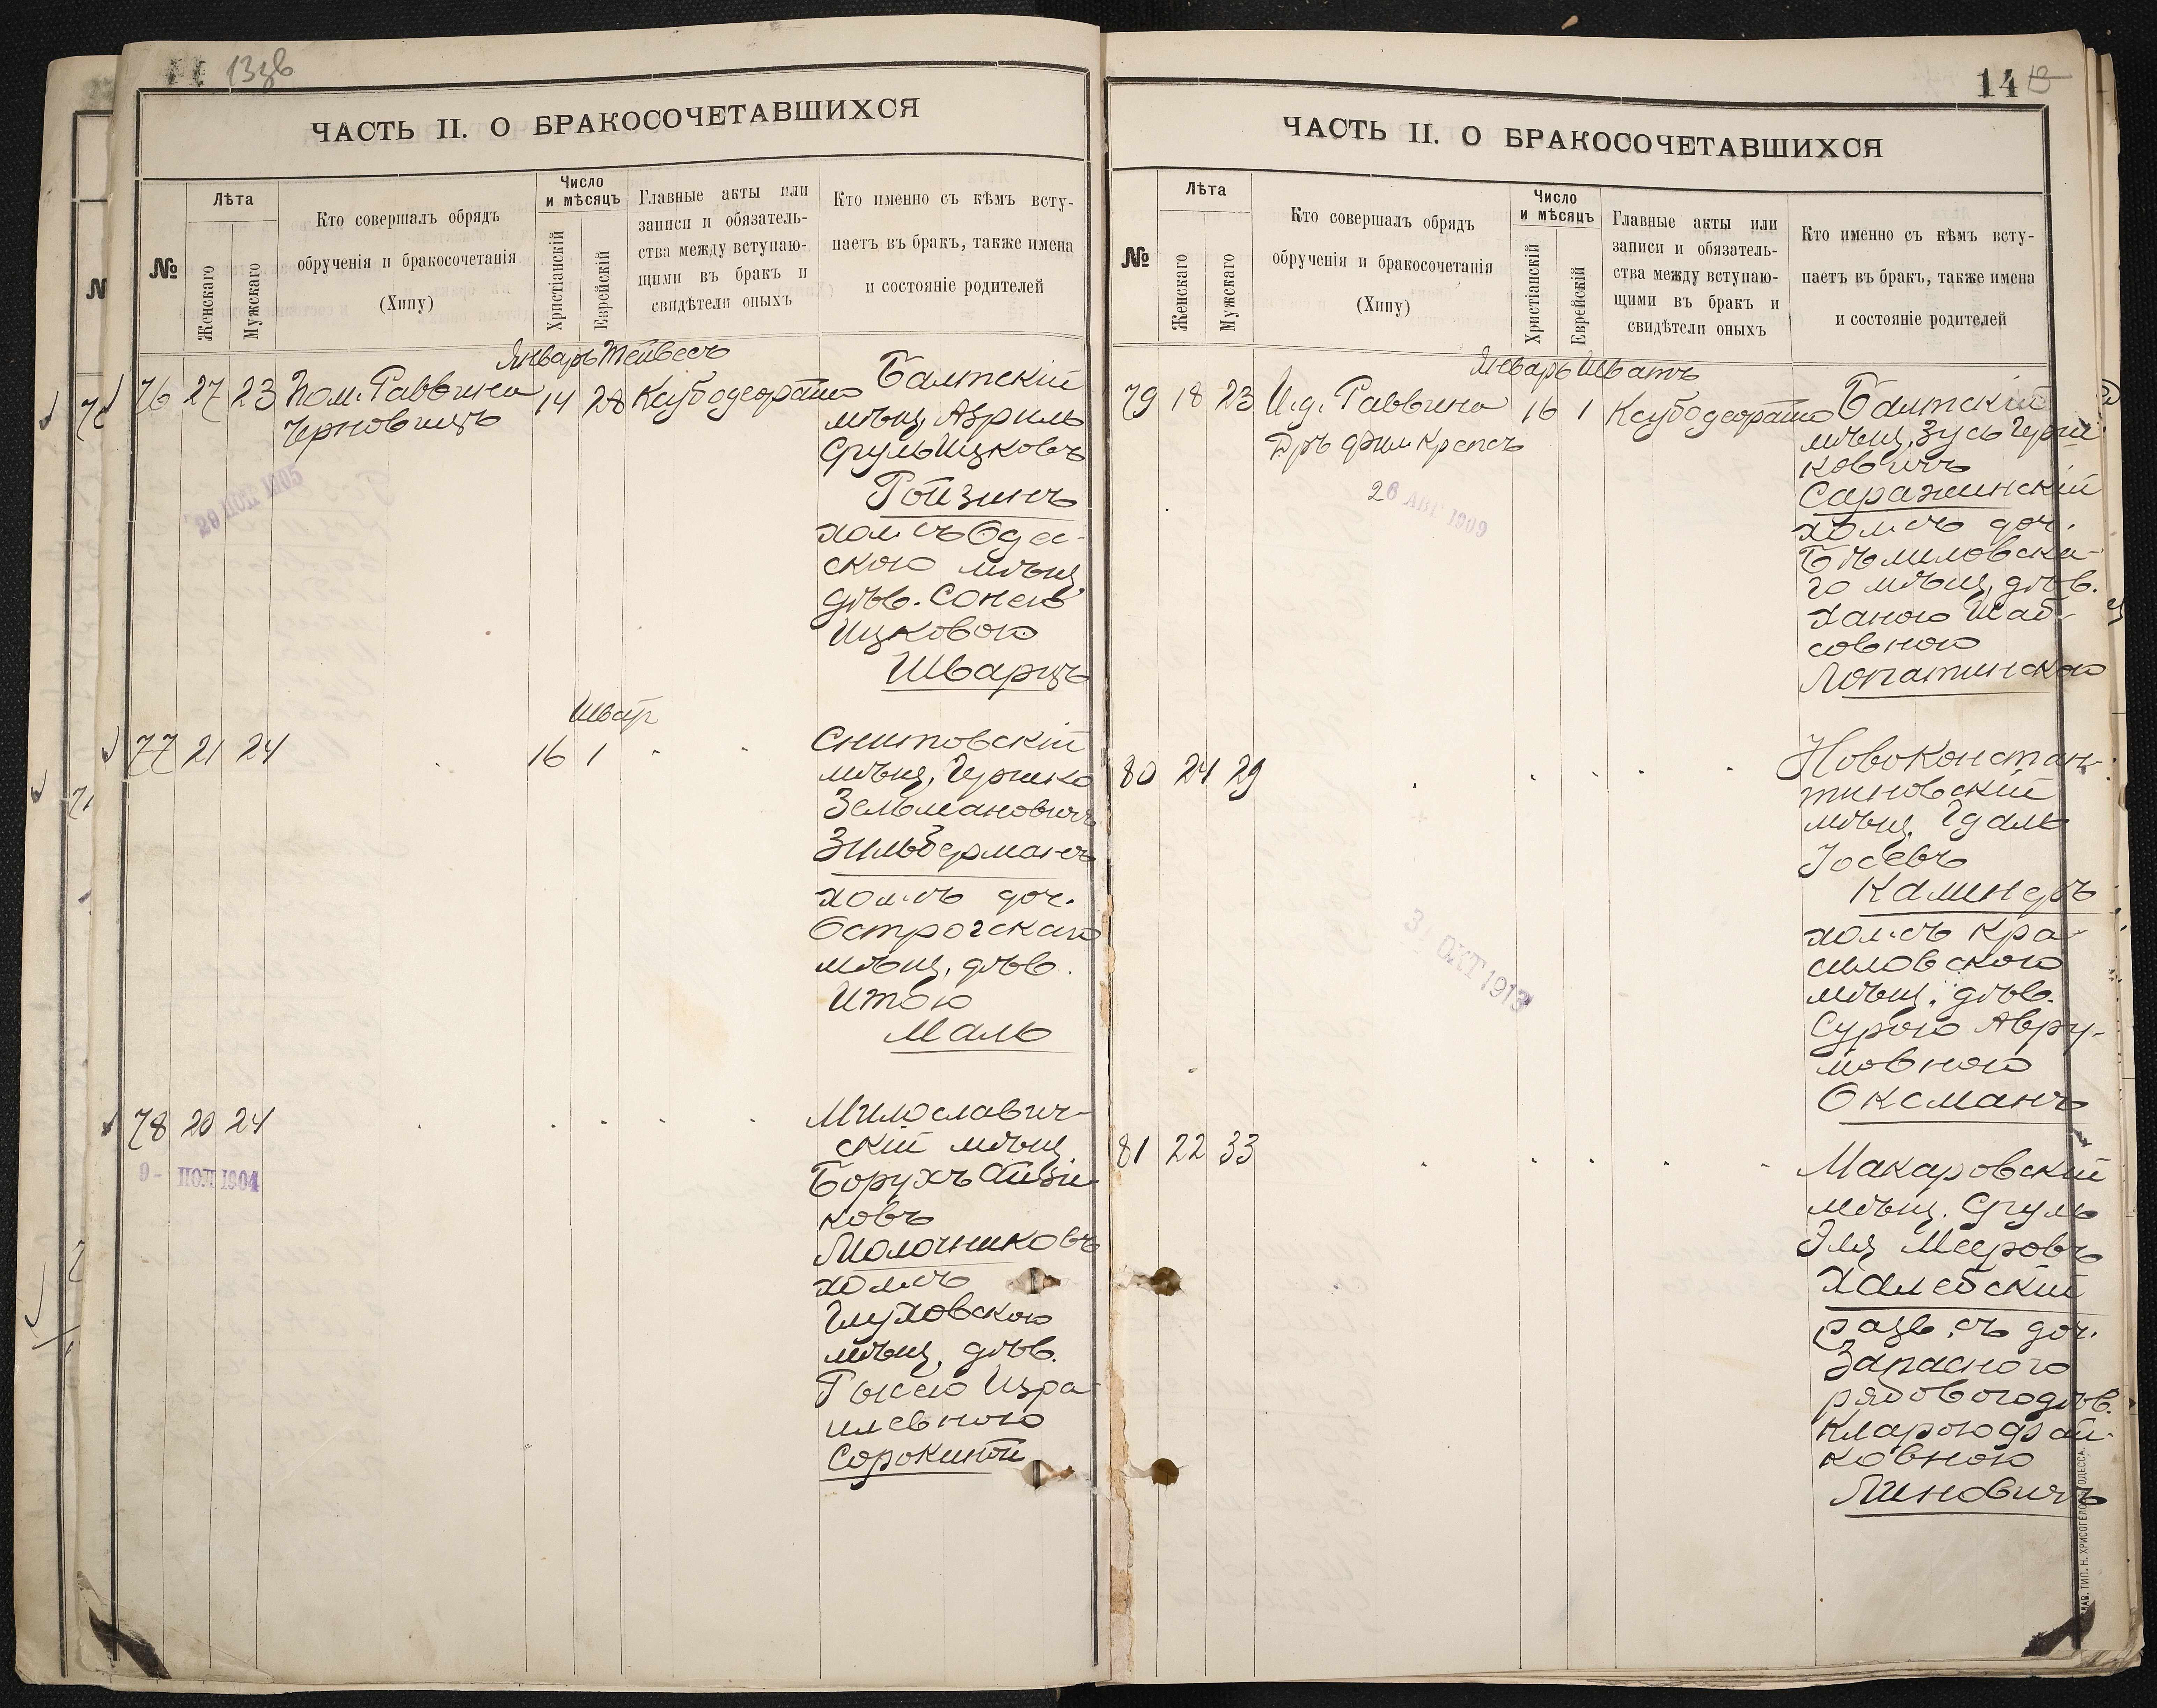 13зв
ЧАСТЬ II. О БРАКОСОЧЕТАВШИХСЯ
№
Лѣта
Женскаго
Мужскаго
Кто совершалъ обрядъ
обрученія и бракосочетанія
(Хипу)
Число
и мѣсяцъ
Христіанскій
Еврейскій
Главные акты или
записи и обязатель-
ства между вступаю-
щими въ бракъ и
свидѣтели оныхъ
Кто именно съ кѣмъ всту-
паетъ въ бракъ, также имена
и состояніе родителей
Январь Тейвесъ
76 27 23 Пом. Раввина 14 28
Черновицъ
Балтскій
мѣщ. Азриль
Сруль Ицковъ
Ройзинъ
хол. съ Одес-
скою мѣщ.
дѣв. Сонею
Ицковою
Шварцъ
Шват
77 21 24 16 1
Снитовскій
мѣщ. Гершко
Зельмановичъ
Зильберманъ
хол. съ доч.
Острогскаго
мѣщ. дѣв.
Итою
Маль
78 20 24
Милославич-
скій мѣщ.
Борухъ Айзи-
ковъ
Молочниковъ
хол. съ
Глуховскою
мѣщ. дѣв.
Рысею Изра-
илевною
Сорокиной
14
ЧАСТЬ II. О БРАКОСОЧЕТАВШИХСЯ
№
Лѣта
Женскаго
Мужскаго
Кто совершалъ обрядъ
обрученія и бракосочетанія
(Хипу)
Число
и мѣсяцъ
Христіанскій
Еврейскій
Главные акты или
записи и обязатель-
ства между вступаю-
щими въ бракъ и
свидѣтели оныхъ
Кто именно съ кѣмъ всту-
паетъ въ бракъ, также имена
и состояніе родителей
Январь Шватъ
79 18 23 И.д. Раввина 16 1
Д-ръ Фил. Крепсъ
26 АВГ 1909
Балтскій
мѣщ. Зусь Герш-
ковичъ
Саражинскій
хол. съ доч.
Бѣлиловска-
го мѣщ. дѣв.
Ханою Шаб-
совною
Лопатинскою
80 24 29
3 ОКТ 1913
Новоконстан-
тиновскій
мѣщ. Гдаль
Іосевъ
Калинеръ
хол. съ Кра-
силовскою
мѣщ. дѣв.
Сурою Авру-
мовною
Оксманъ
81 22 33
Макаровскій
мѣщ. Сруль
Эля Мееровъ
Халебскій
разв. съ доч.
Запасного
рядового дѣв.
Кларою
ковною
Линовичъ
ТИП. Н. ХРИСОГЕЛОСЪ, ОДЕССА.